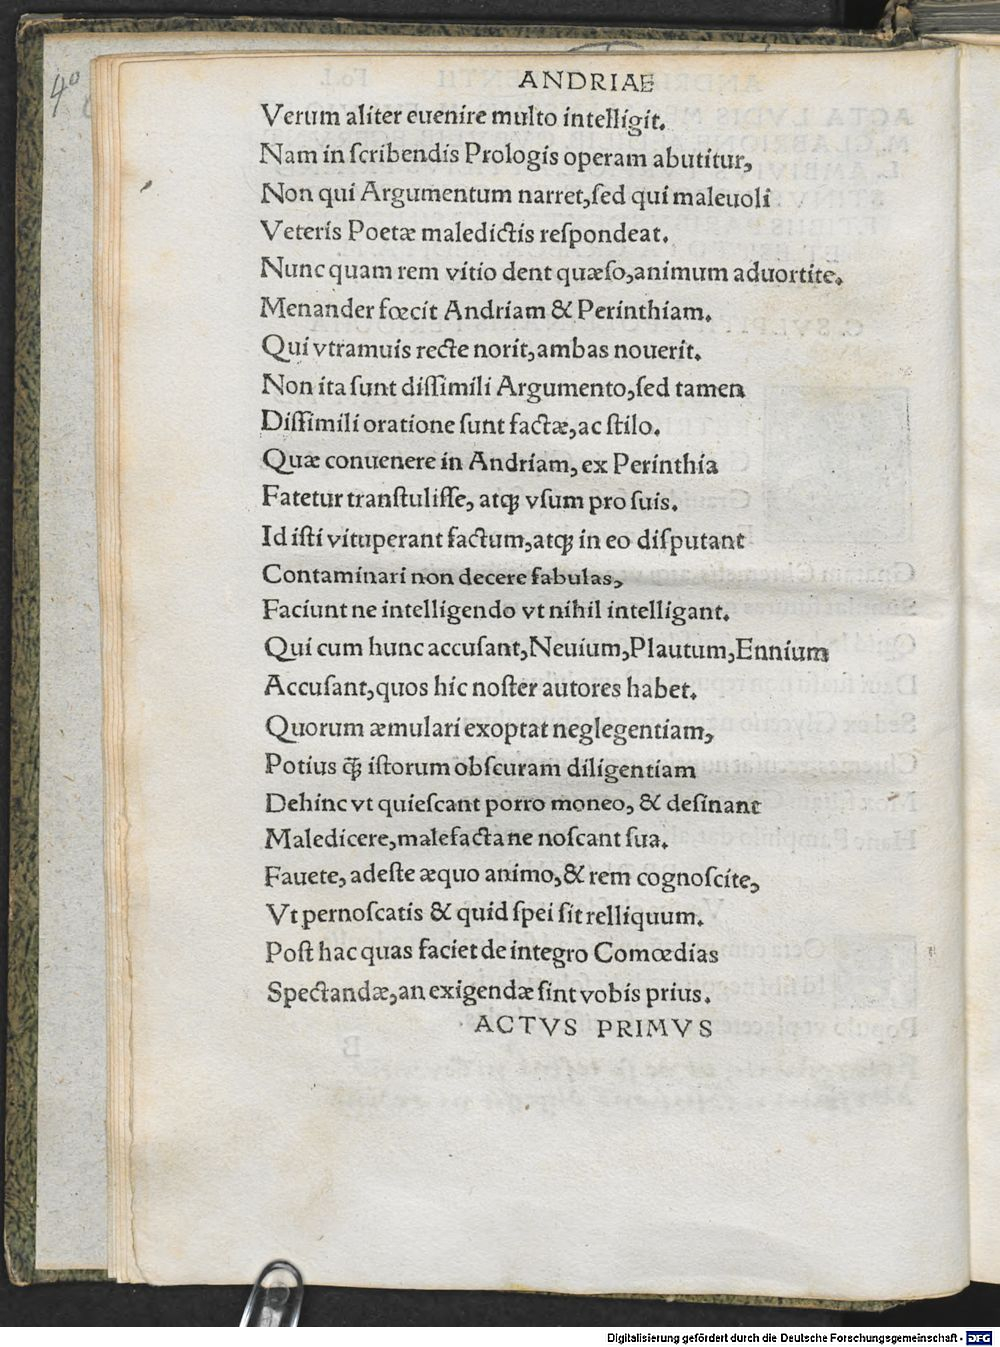 4°
ANDRIAE
Verum aliter euenire multo intelligit.
Nam in ſcribendis Prologis operam abutitur,
Non qui Argumentum narret,ſed qui maleuoli
Veteris Poetæ maledictis reſpondeat.
Nunc quam rem vitio dent quæſo,animum aduortite.
Menander fœcit Andriam & Perinthiam.
Qui vtramuis recte norit,ambas nouerit.
Non ita ſunt diſſimili Argumento,ſed tamen
Diſſimili oratione ſunt factæ,ac ſtilo.
Quæ conuenere in Andriam, ex Perinthia
Fatetur tranſtuliſſe, atqꝫ vſum pro ſuis.
Id iſti vituperant factum,atqꝫ in eo diſputant
Contaminari non decere fabulas,
Faciunt ne intelligendo vt nihil intelligant.
Qui cum hunc accuſant,Neuium,Plautum,Ennium
Accuſant,quos hic noſter autores habet.
Quorum æmulari exoptat neglegentiam,
Potius q̃ꝫ iſtorum obſcuram diligentiam
Dehinc vt quieſcant porro moneo, & deſinant
Maledicere,malefacta ne noſcant ſua.
Fauete, adeſte æquo animo,& rem cognoſcite,
Vt pernoſcatis & quid ſpei ſit relliquum.
Poſt hac quas faciet de integro Comœdias
Spectandæ,an exigendæ ſint vobis prius.
ACTVS PRIMVS
Digitalisierung gefördert durch die Deutsche Forschungsgemeinschaft - DFG